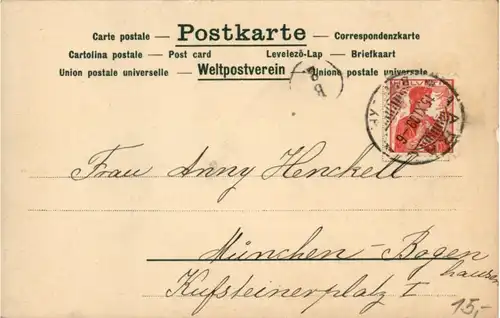 Carte postale — Postkarte — Correspondenzkarte
Cartolina postale — Post card Levelezö-Lap — Briefkaart
Union postale universelle — Weltpostverein — Unione postale universale
B
Frau Anny Henckell
München-Bogen
hausen
Kufsteinerplatz I
15,-